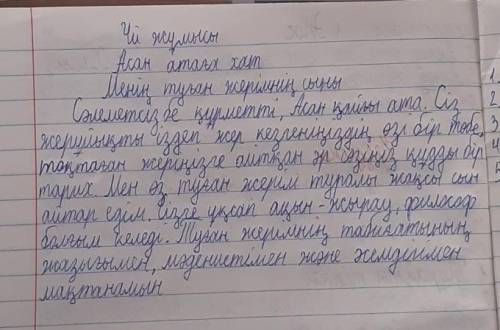 Үй жұмысы
Асан атаға хат
Менің туған жерімнің сыны
Сәлеметсізбе құрметті, Асан қайғы ата. Сіз
жерұйықты іздеп жер кезгеніңіздің өзі бір төбе,
тоқтаған жеріңізге айтқан әр сөзіңіз құдды бір
тарих. Мен өз туған жерім туралы жақсы сын
айтар едім. Сізге ұқсап ақын-жырау, философ
болғым келеді. Туған жерімнің табиғатының
жазығымен, мәдениетімен және жемдігімен
мақтанамын
1
2
3
4
5